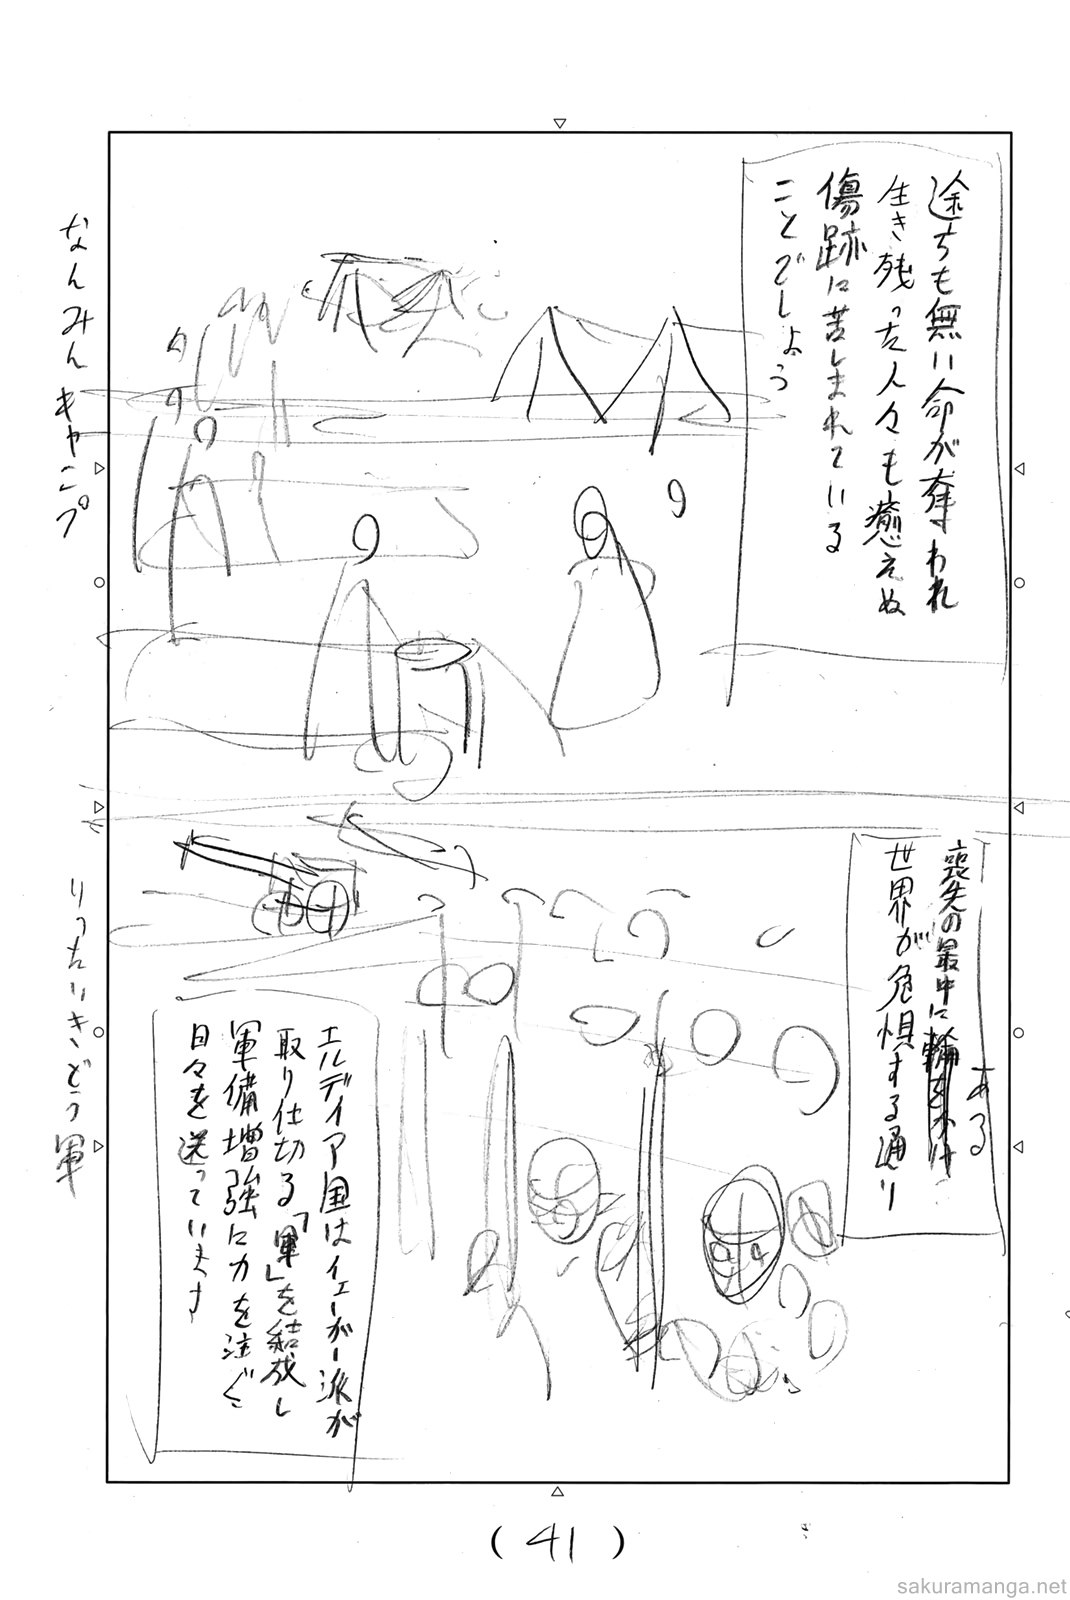 途方も無い命が奪われ
生き残った人々も癒えぬ
傷跡に苦しまれている
ことでしょう
なんみんキャンプ
喪失の最中に
ある
世界が危惧する通り
エルディア国はイェーガー派が
取り仕切る「軍」を結成し
軍備増強に力を注ぐ
日々を送っています
りったいきどう軍
(41)
sakuramanga.net